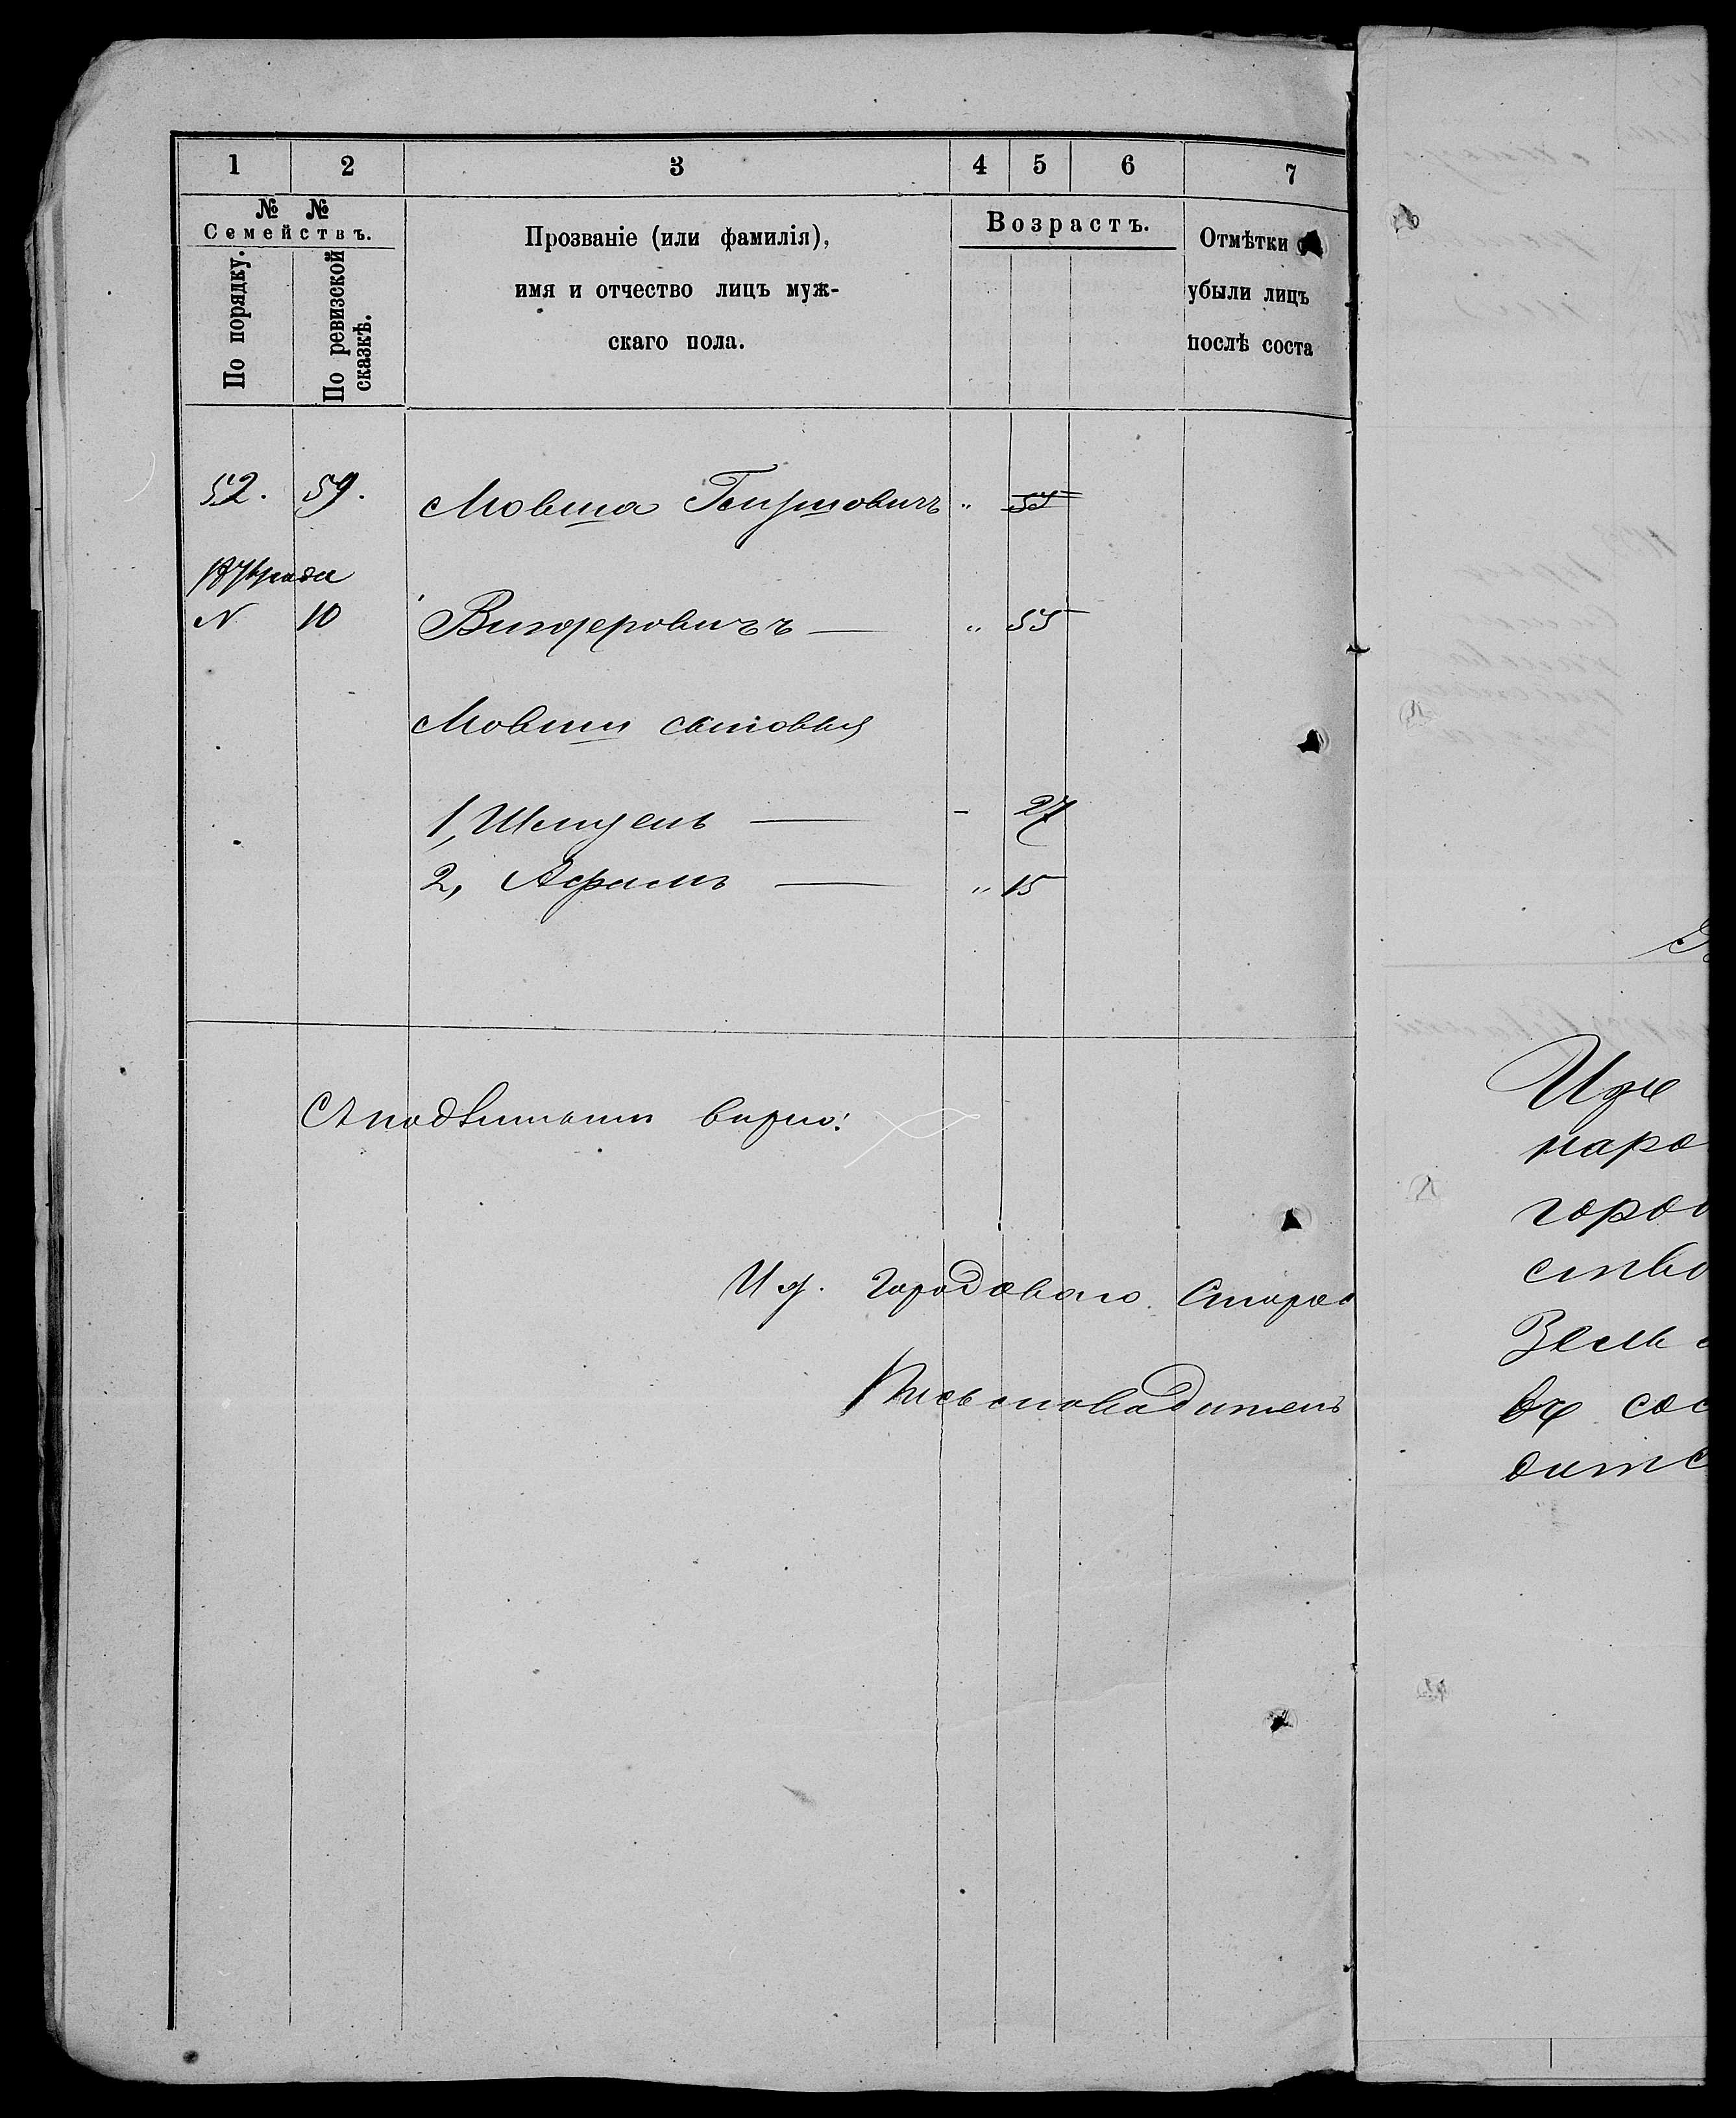 1 2 3 4 5 6 7
№ №
Семействъ.
По порядку.
По ревизской
сказкѣ.
Прозваніе (или фамилія),
имя и отчество лицъ муж-
скаго пола.
Возрастъ.
Отмѣтки
убыли лицъ
послѣ соста
52. 59. Мовша Гиршовичъ " 55
N 10 " 55
Мовши сыновья
1, Шмуель — - 27
2, — " 15
С подлиннымъ вѣрно:
И д. Городоваго Старос
Письмоводитель
наро
горо
ство
Земь
въ сос